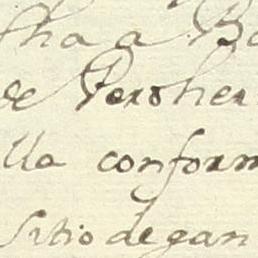 tha a Ba
de Peroher
lla conform
Sitio de gan